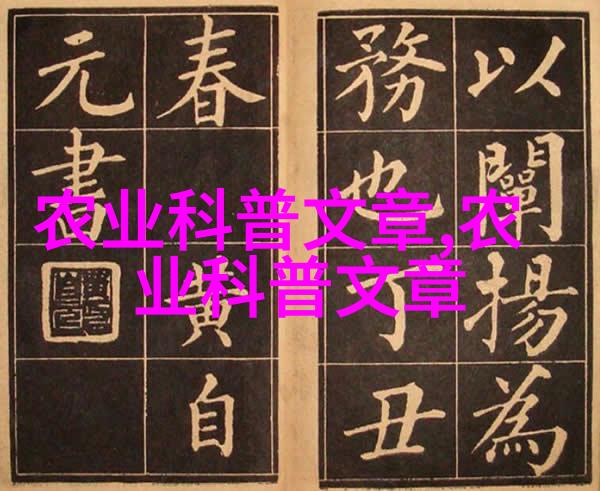 以闡揚為
務也丁丑
春 黄自
元書
农业科普文章,农
业科普文章